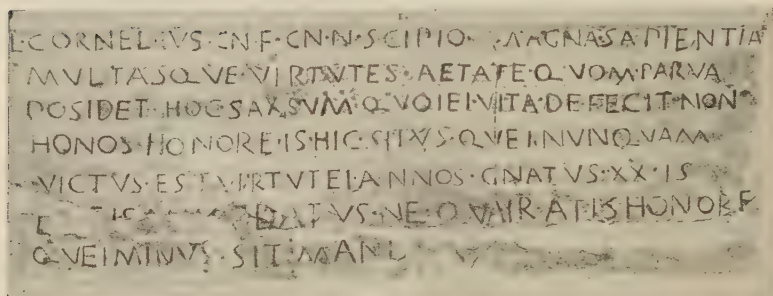 L·CORNELIVS·CN·F·CN·N·SCIPIO· MAGNA SAPIENTIA
MVLTASQVE·VIRTVTES·AETATE·QVOM·PARVA
POSIDET·HOC SAXSVM·QVOIEI·VITA·DEFECIT·NON
HONOS·HONORE·IS·HIC·SITVS·QVEI·NVNQVAM
VICTVS·EST VIRTVTEI·ANNOS·GNATVS·XX·IS
DATVS·NE·QVAIRATIS HONORE
QVEIMINVS·SIT